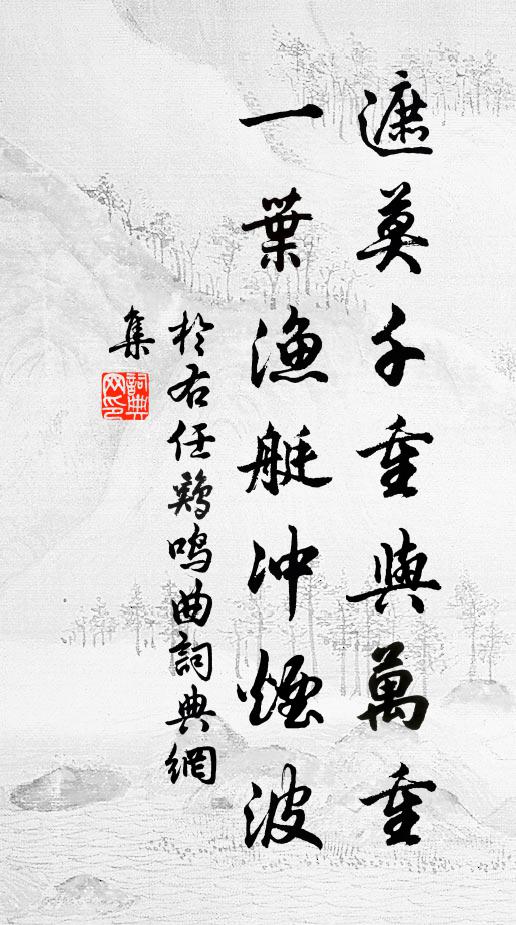 遮莫千重與萬重
一葉漁艇冲煙波
於右任鷄鳴曲詞典網
集
詞典
网印